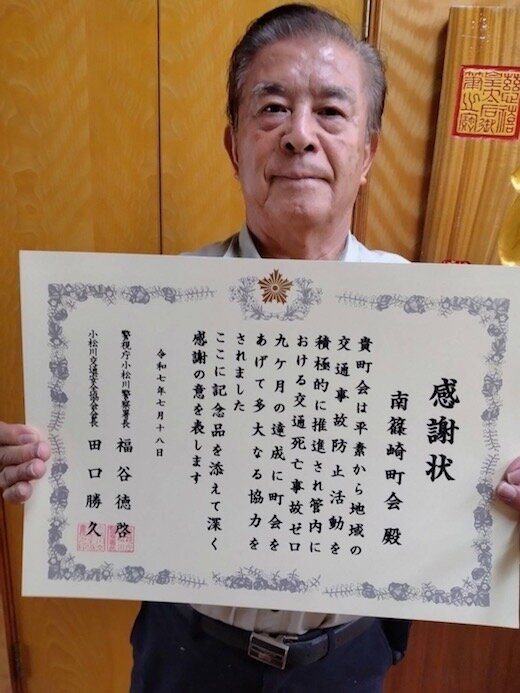 感謝状
南篠崎町会 殿
貴町会は平素から地域の
交通事故防止活動を
積極的に推進され管内に
おける交通死亡事故ゼロ
九ケ月の達成に町会を
あげて多大なる協力を
されました
ここに記念品を添えて深く
感謝の意を表します
令和七年七月十八日
警視庁小松川警察署長 福谷徳啓
小松川交通安全協会会長 田口勝久